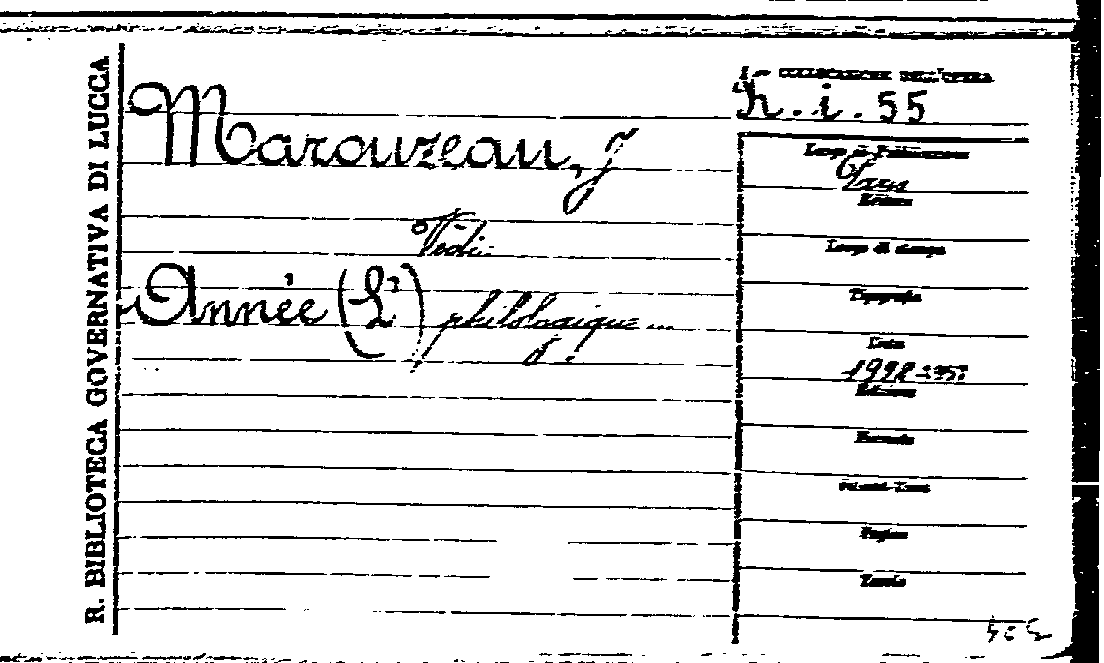 R. BIBLIOTECA GOVERNATIVA DI LUCCA
Marouzeau, J
Vedi:
Année (L') philologique...
I - COLLOCAZIONE DELL'OPERA
h. i. 55
Luogo di Pubblicazione
Paris
Editore
Luogo di stampa
Tipografo
Data
1928-1957
Edizione
Formato
Volumi-Tomi
Pagine
Tavole